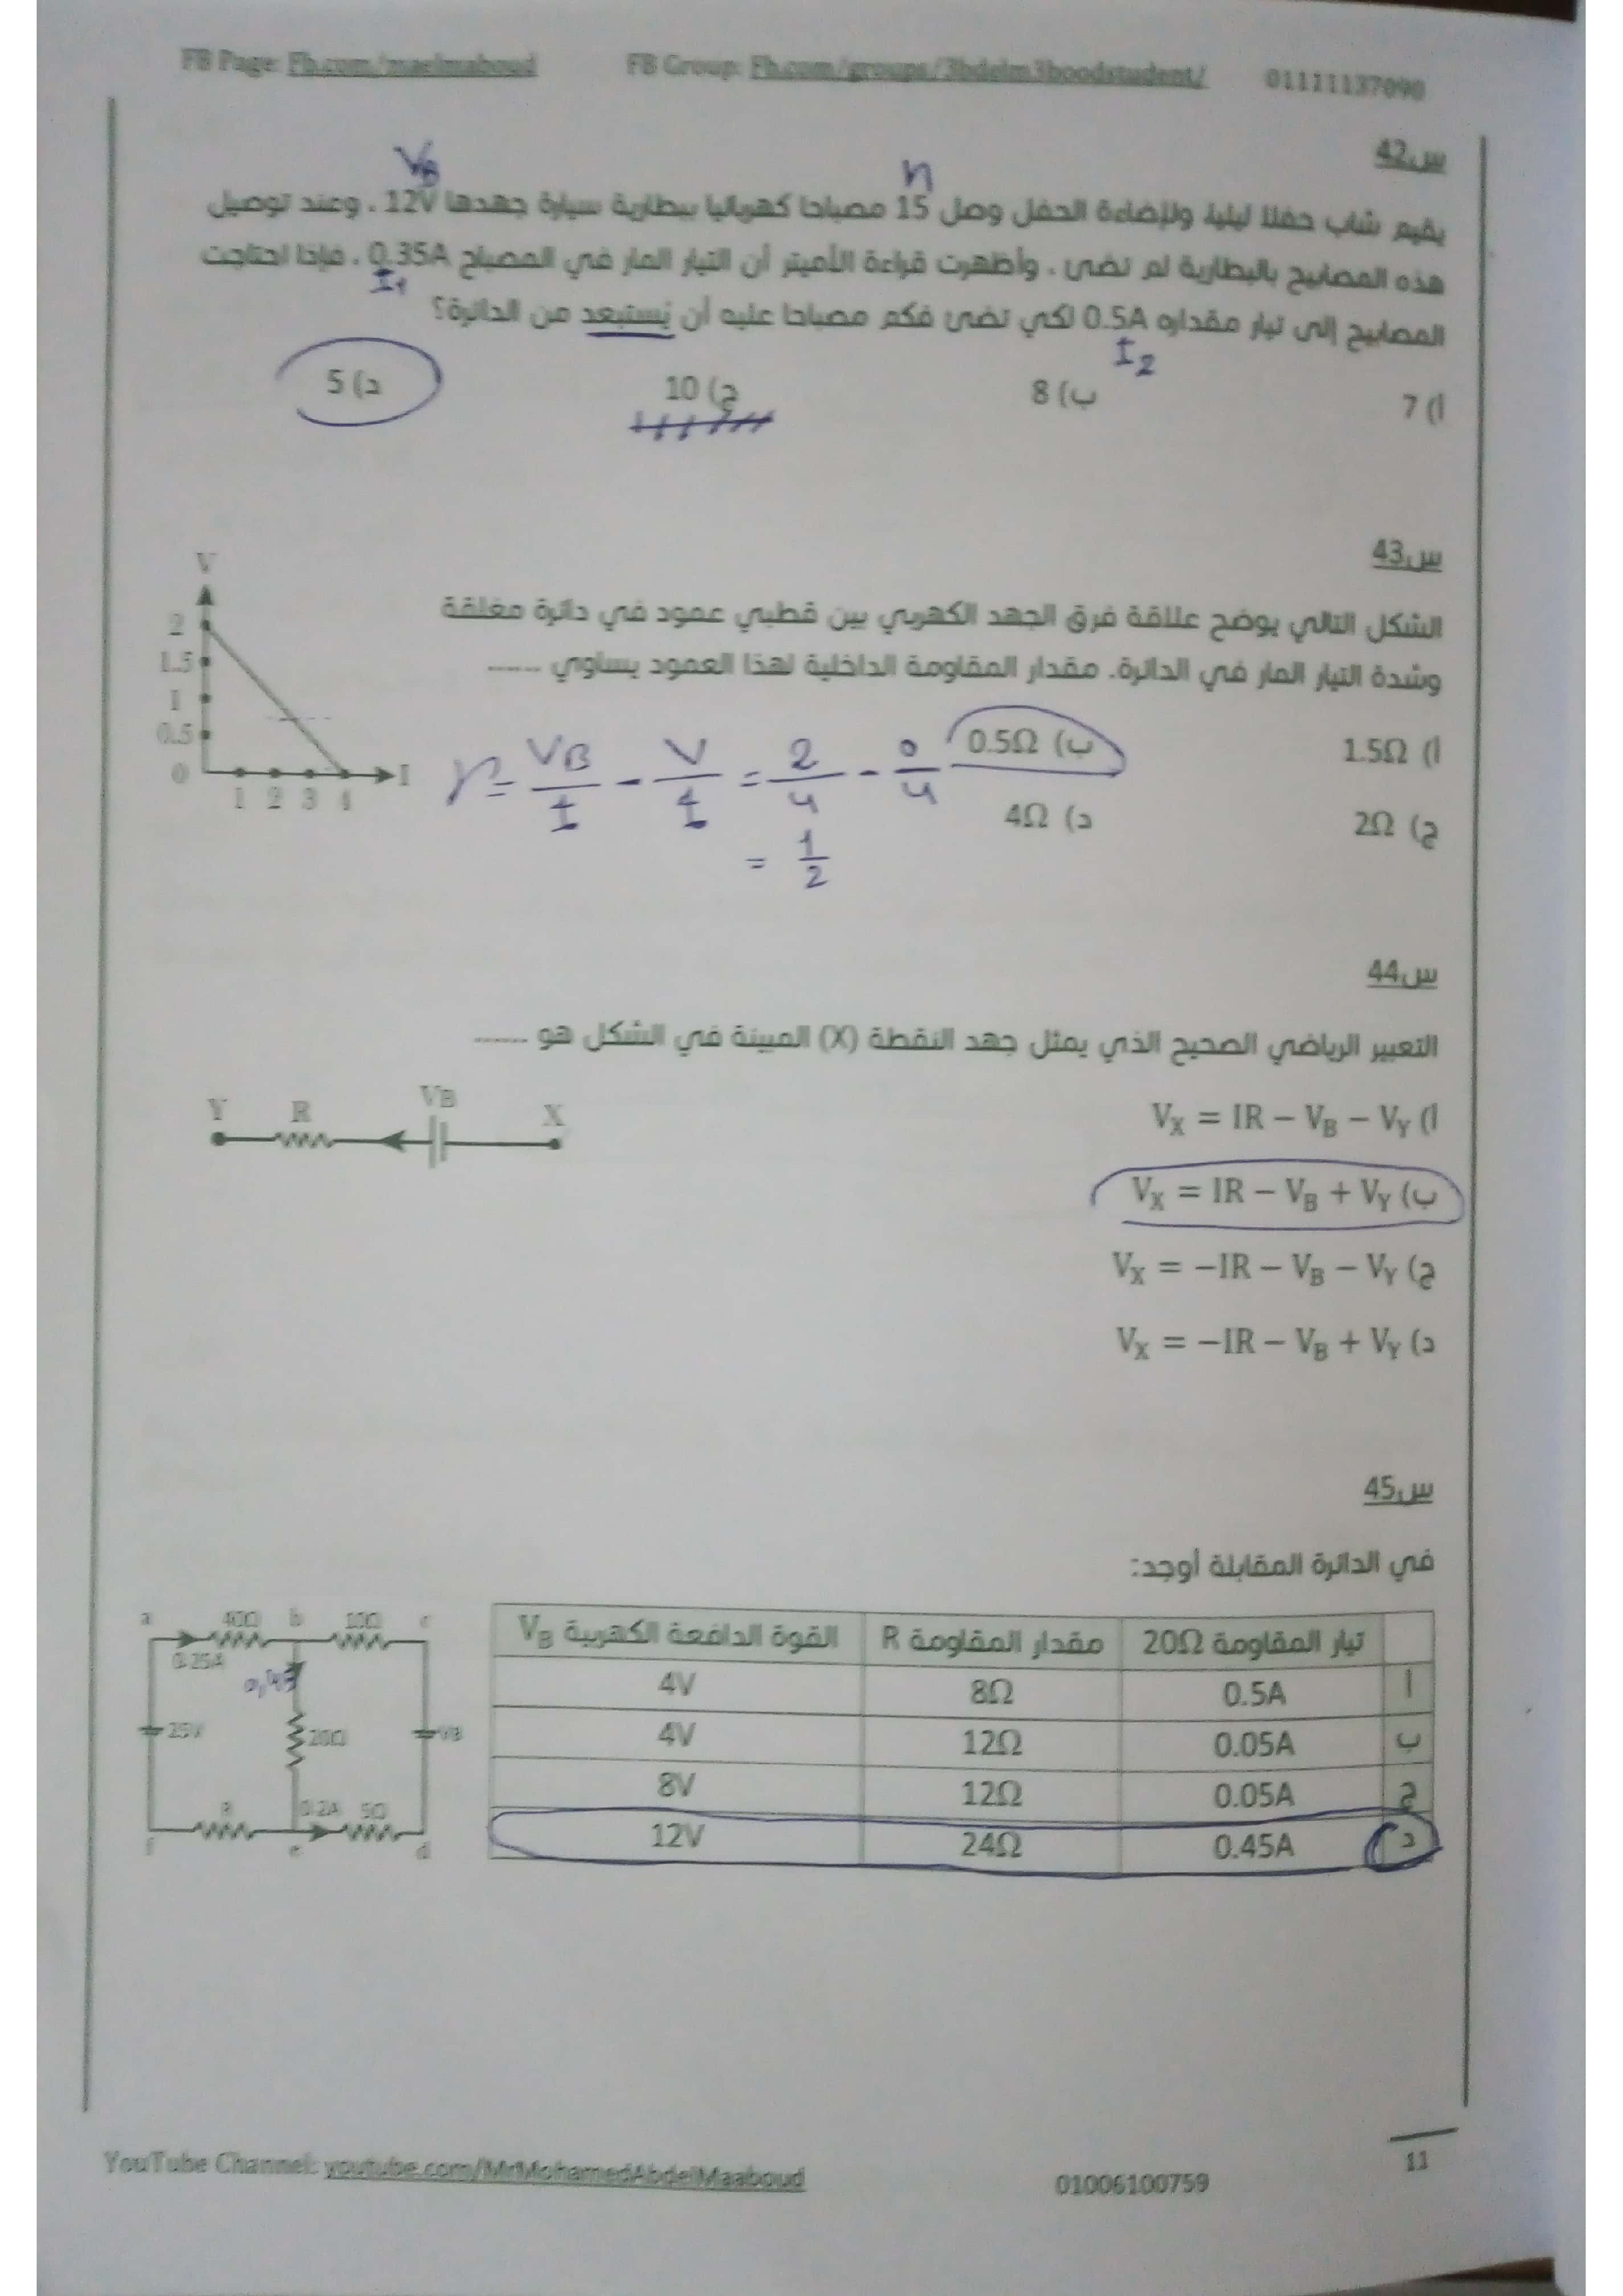 FB Page: Fb.com/maelmaboud FB Group: Fb.com/groups/3bdelm3boodstudent/ 01111137090
س42
V_B n
يقيم شاب حفلا ليليا، ولإضاءة الحفل وصل 15 مصباحا كهربائيا ببطارية سيارة جهدها 12V . وعند توصيل
هذه المصابيح بالبطارية لم تضئ . وأظهرت قراءة الأميتر أن التيار المار في المصباح 0.35A . فإذا احتاجت
I₁
المصابيح إلى تيار مقداره 0.5A لكي تضئ فكم مصباحا عليه أن يُستبعد من الدائرة؟
I₂
أ) 7 ب) 8 ج) 10 د) 5
س43
الشكل التالي يوضح علاقة فرق الجهد الكهربي بين قطبي عمود في دائرة مغلقة
وشدة التيار المار في الدائرة. مقدار المقاومة الداخلية لهذا العمود يساوي ......
V
2
1.5
1
0.5
0
1 2 3 4
I
أ) 1.5Ω ب) 0.5Ω
ج) 2Ω د) 4Ω
r = V_B/I - V/I = 2/4 - 0/4
= 1/2
س44
التعبير الرياضي الصحيح الذي يمثل جهد النقطة (X) المبينة في الشكل هو ......
Y R V_B X
أ) V_X = IR – V_B – V_Y
ب) V_X = IR – V_B + V_Y
ج) V_X = –IR – V_B – V_Y
د) V_X = –IR – V_B + V_Y
س45
في الدائرة المقابلة أوجد:
تيار المقاومة 20Ω مقدار المقاومة R القوة الدافعة الكهربية V_B
أ 0.5A 8Ω 4V
ب 0.05A 12Ω 4V
ج 0.05A 12Ω 8V
د 0.45A 24Ω 12V
a 40Ω b 10Ω c
0.25A
25V 20Ω VB
R 0.2A 5Ω
f e d
11
YouTube Channel: youtube.com/MrMohamedAbdelMaaboud 01006100759